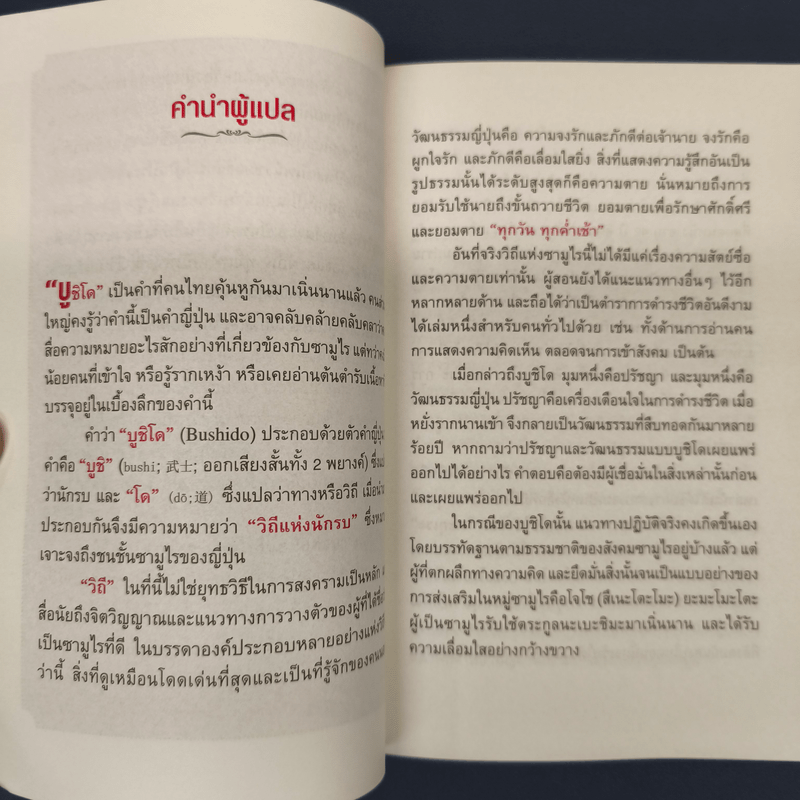 คำนำผู้แปล
“บูชิโด” เป็นคำที่คนไทยคุ้นหูกันมาเนิ่นนานแล้ว คนส่วน
ใหญ่คงรู้ว่าคำนี้เป็นคำญี่ปุ่น และอาจคลับคล้ายคลับคลาว่า
สื่อความหมายอะไรสักอย่างที่เกี่ยวข้องกับซามูไร แต่ทว่าคง
น้อยคนที่เข้าใจ หรือรู้รากเหง้า หรือเคยอ่านต้นตำรับเนื้อหา
บรรจุอยู่ในเบื้องลึกของคำนี้
คำว่า “บูชิโด” (Bushido) ประกอบด้วยตัวคำญี่ปุ่น
คำคือ “บูชิ” (bushi; 武士; ออกเสียงสั้นทั้ง 2 พยางค์) ซึ่ง
ว่านักรบ และ “โด” (dō; 道) ซึ่งแปลว่าทางหรือวิถี เมื่อนำ
ประกอบกันจึงมีความหมายว่า “วิถีแห่งนักรบ” ซึ่งหมาย
เจาะจงถึงชนชั้นซามูไรของญี่ปุ่น
“วิถี” ในที่นี้ไม่ใช่ยุทธวิธีในการสงครามเป็นหลัก
สื่อนัยถึงจิตวิญญาณและแนวทางการวางตัวของผู้ที่ได้ชื่อ
เป็นซามูไรที่ดี ในบรรดาองค์ประกอบหลายอย่างแห่งวิถี
ว่านี้ สิ่งที่ดูเหมือนโดดเด่นที่สุดและเป็นที่รู้จักของคน
วัฒนธรรมญี่ปุ่นคือ ความจงรักและภักดีต่อเจ้านาย จงรักคือ
ผูกใจรัก และภักดีคือเลื่อมใสยิ่ง สิ่งที่แสดงความรู้สึกอันเป็น
รูปธรรมนั้นได้ระดับสูงสุดก็คือความตาย นั่นหมายถึงการ
ยอมรับใช้นายถึงขั้นถวายชีวิต ยอมตายเพื่อรักษาศักดิ์ศรี
และยอมตาย “ทุกวัน ทุกค่ำเช้า”
อันที่จริงวิถีแห่งซามูไรนี้ไม่ได้มีแค่เรื่องความสัตย์ซื่อ
และความตายเท่านั้น ผู้สอนยังได้แนะแนวทางอื่นๆ ไว้อีก
หลากหลายด้าน และถือได้ว่าเป็นตำราการดำรงชีวิตอันดีงาม
ได้เล่มหนึ่งสำหรับคนทั่วไปด้วย เช่น ทั้งด้านการอ่านคน
การแสดงความคิดเห็น ตลอดจนการเข้าสังคม เป็นต้น
เมื่อกล่าวถึงบูชิโด มุมหนึ่งคือปรัชญา และมุมหนึ่งคือ
วัฒนธรรมญี่ปุ่น ปรัชญาคือเครื่องเตือนใจในการดำรงชีวิต เมื่อ
หยั่งรากนานเข้า จึงกลายเป็นวัฒนธรรมที่สืบทอดกันมาหลาย
ร้อยปี หากถามว่าปรัชญาและวัฒนธรรมแบบบูชิโดเผยแพร่
ออกไปได้อย่างไร คำตอบคือต้องมีผู้เชื่อมั่นในสิ่งเหล่านั้นก่อน
และเผยแพร่ออกไป
ในกรณีของบูชิโดนั้น แนวทางปฏิบัติจริงคงเกิดขึ้นเอง
โดยบรรทัดฐานตามธรรมชาติของสังคมซามูไรอยู่บ้างแล้ว แต่
ผู้ที่ตกผลึกทางความคิด และยึดมั่นสิ่งนั้นจนเป็นแบบอย่างของ
การส่งเสริมในหมู่ซามูไรคือโจโช (สึเนะโตะโมะ) ยะมะโมะโตะ
ผู้เป็นซามูไรรับใช้ตระกูลนะเบะชิมะมาเนิ่นนาน และได้รับ
ความเลื่อมใสอย่างกว้างขวาง